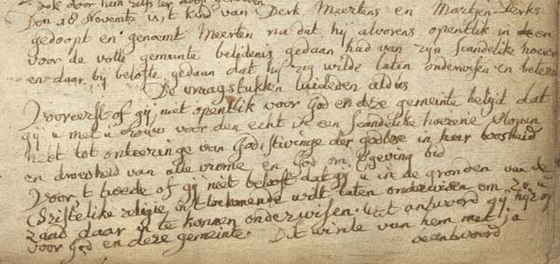 ook door hun zelfs
Den 28 Novemb: is, t kind van Derk Meertens en Martjen Derks
gedoopt en genoemt Meerten na dat hij alvorens opentlik in de
voor de volle gemeinte belijtenis gedaan had van zijn scandelike
en daar bij belofte gedaan dat hij zig wilde laten onderwijsen en
De vraagstukken luideden aldus
Vooreerst of gij niet opentlik voor God en dese gemeinte belijd dat
gij u met u vrouw voor den echt in een scandelike hoererie
hebt tot onteeringe van God stivinge der goolose in haar boosheid
en droevheid van alle vrome en God om vergeving bid
Voor t tweede of gij niet belooft dat gij u in de gronden van de
Cristelike religie in t toekomende wilt laten onderwisen om
zaad daar in te konnen onderwisen. Wat antwoord gij
voor God en deze gemeinte. Dit wirde van hem met ja
beantwoord